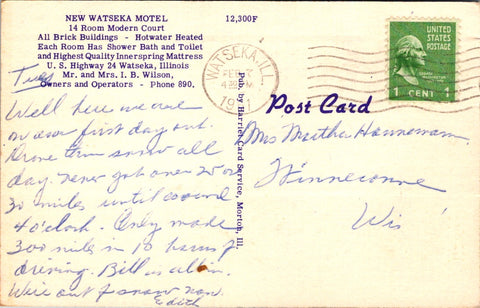 NEW WATSEKA MOTEL
14 Room Modern Court
All Brick Buildings - Hotwater Heated
Each Room Has Shower Bath and Toilet
and Highest Quality Innerspring Mattress
U. S. Highway 24 Watseka, Illinois
Mr. and Mrs. I. B. Wilson,
Owners and Operators - Phone 890.
12,300F
Tues
Well here we are
on our first day out
Drove thru snow all
day. never got over 25 or
30 miles until around
4 o'clock. Only made
300 miles in 10 hours
driving. Bill is all in.
We're out of snow now.
Edith
Pub. by Harriet Card Service, Morton, Ill.
WATSEKA, ILL.
FEB
4 PM
19
UNITED
STATES
POSTAGE
1 CENT 1
Post Card
Mrs Martha Hanneman
Winneconne
Wis